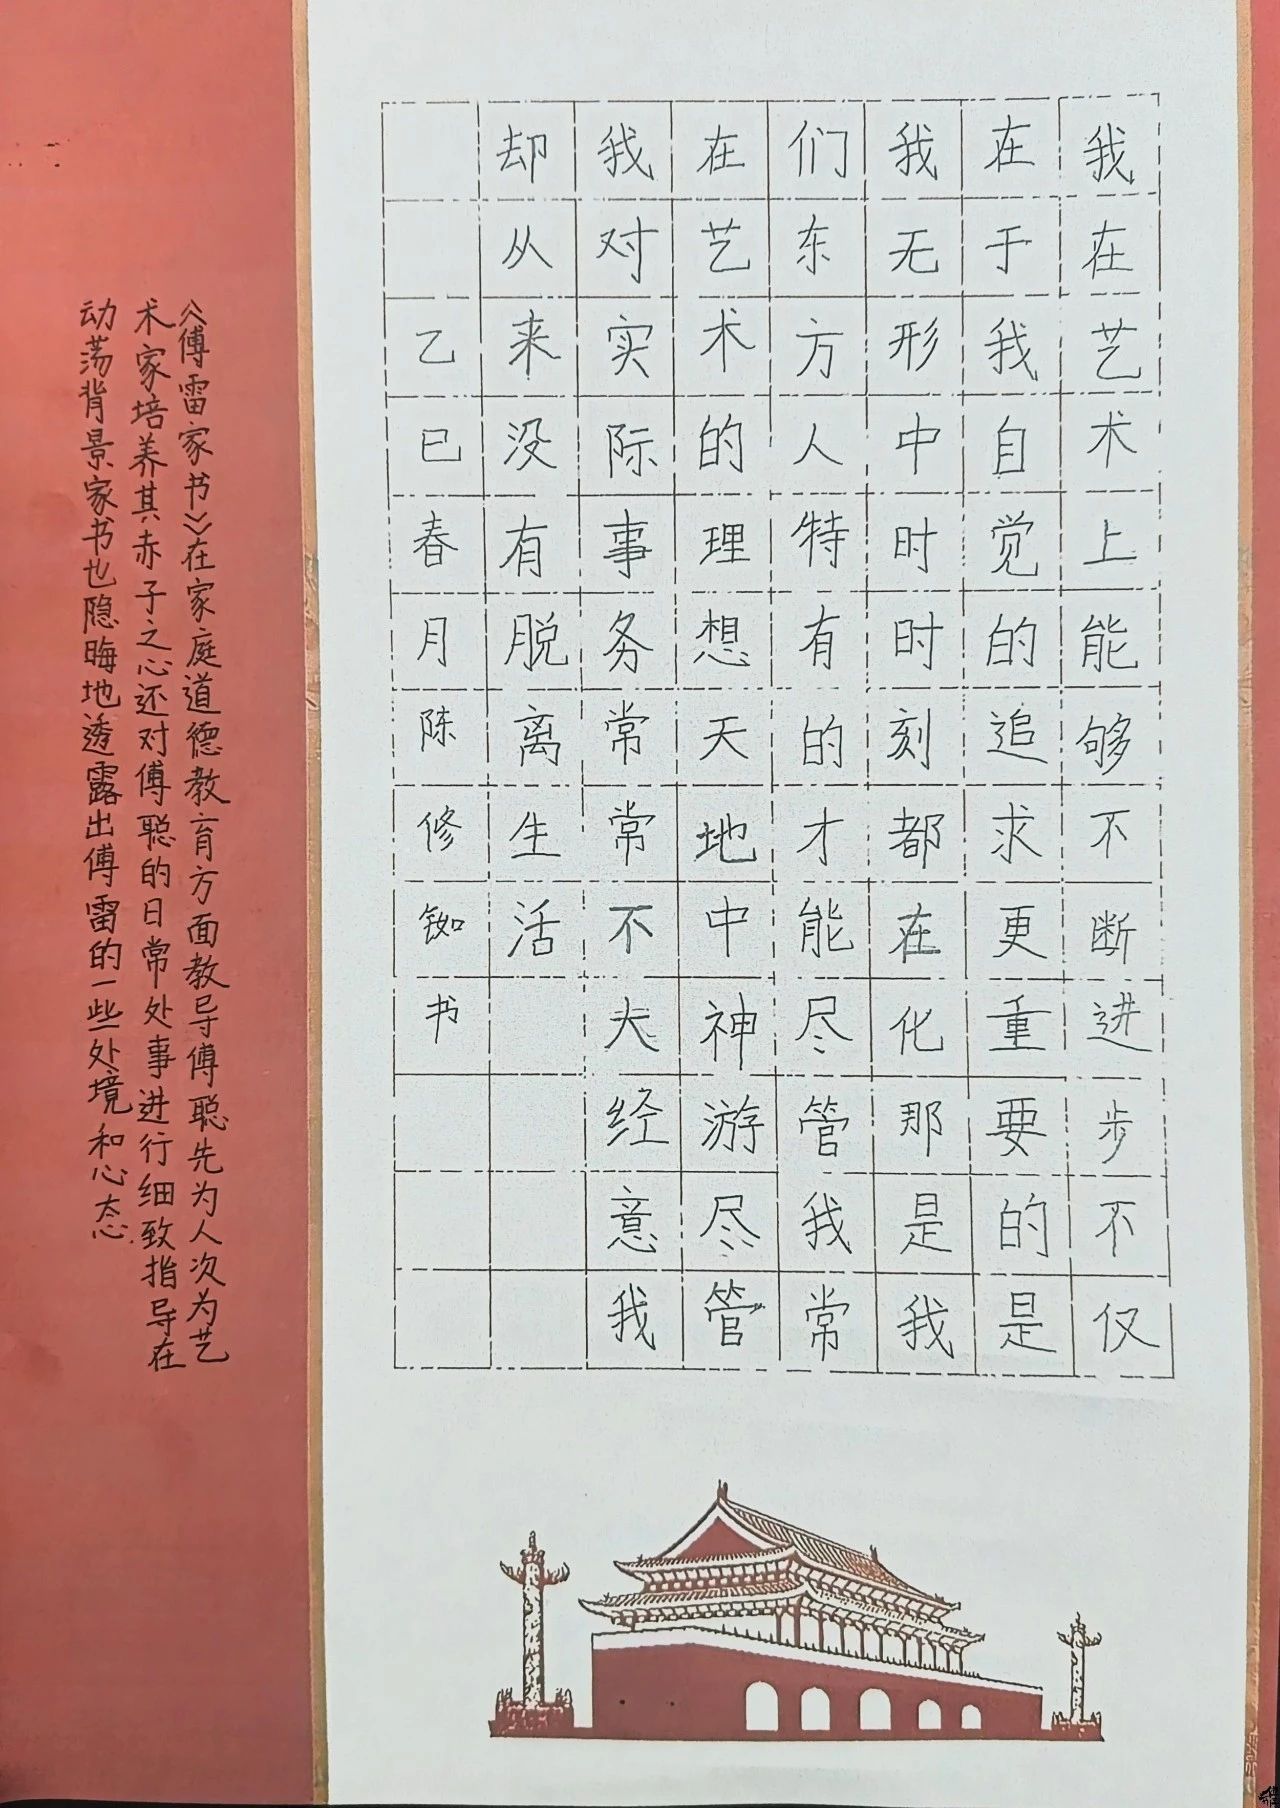 我在艺术上能够不断进步不仅
在于我自觉的追求更重要的是
我无形中时时刻都在化那是我
们东方人特有的才能尽管我常
在艺术的理想天地中神游尽管
我对实际事务常常不大经意我
却从来没有脱离生活
乙巳春月陈修铷书
《傅雷家书》在家庭道德教育方面教导傅聪先为人次为艺
术家培养其赤子之心还对傅聪的日常处事进行细致指导在
动荡背景家书也隐晦地透露出傅雷的一些处境和心态.